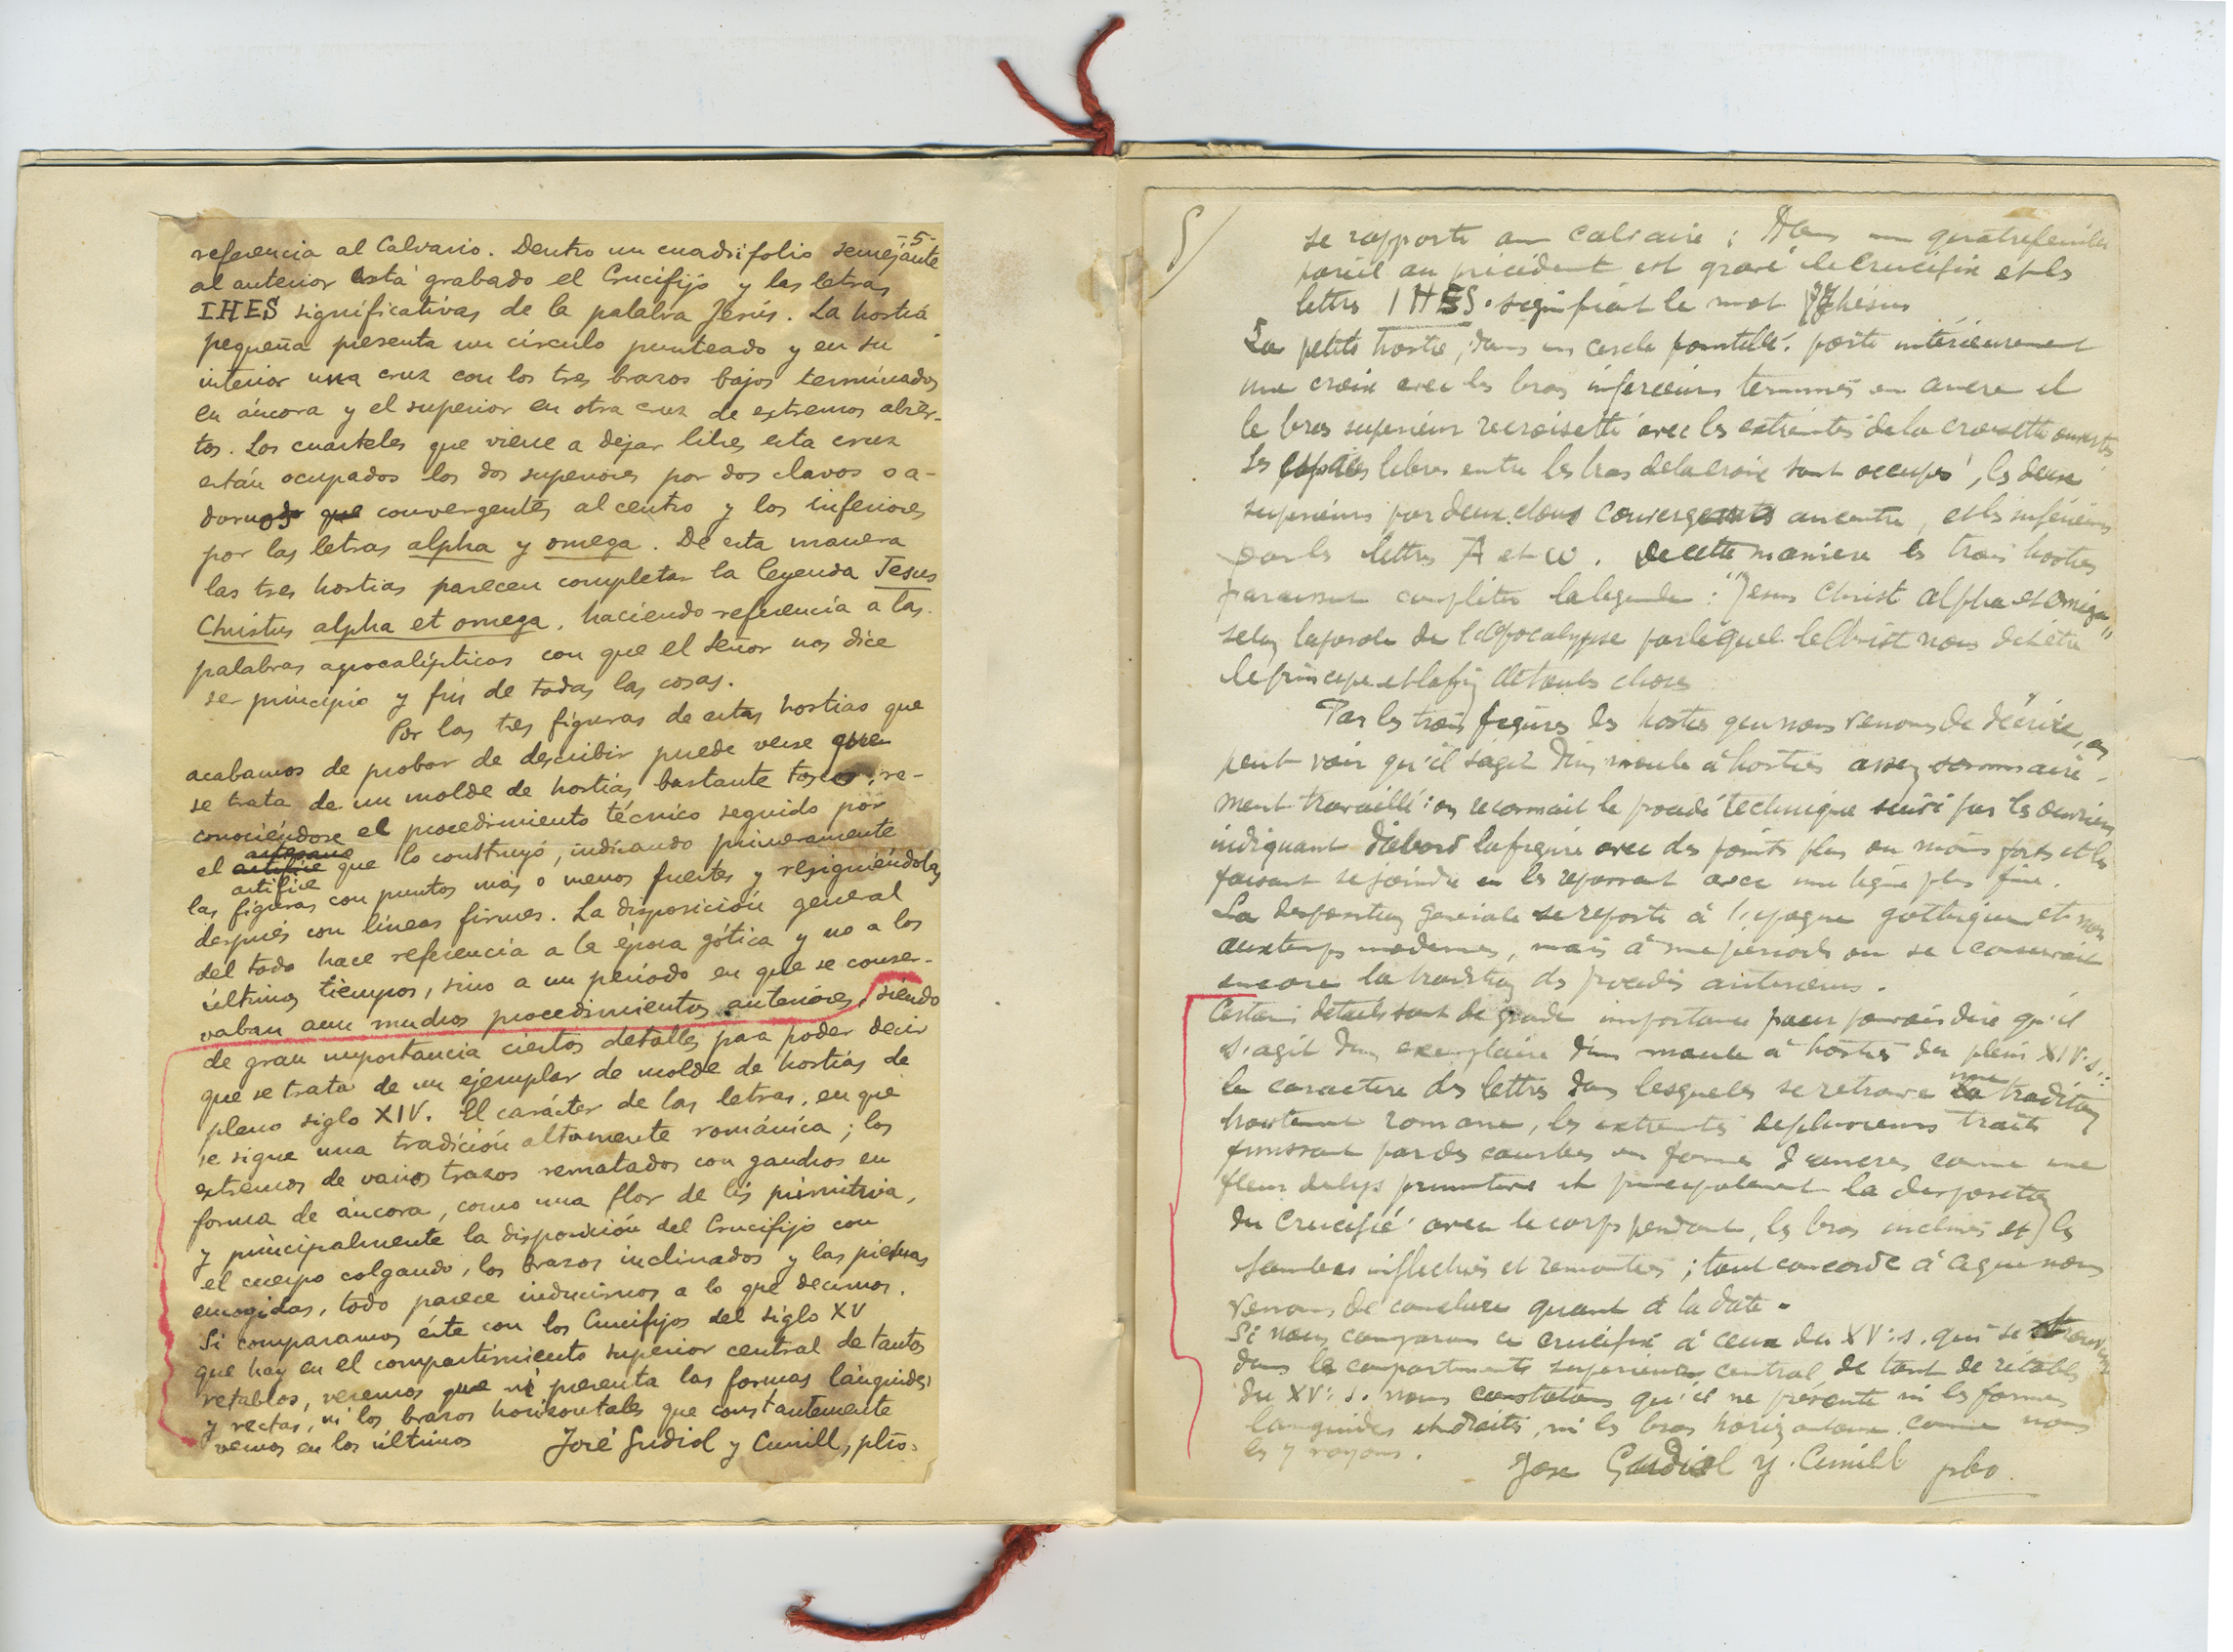 -5-
referencia al Calvario. Dentro un cuadrifolio semejante
al anterior está grabado el Crucifijo y las letras
IHES significativas de la palabra Jesús. La hostia
pequeña presenta un círculo punteado y en su
interior una cruz con los tres brazos bajos terminados
en áncora y el superior en otra cruz de extremos abier-
tos. Los cuarteles que viene a dejar libres esta cruz
están ocupados los dos superiores por dos clavos o a-
dornos que convergentes al centro y los inferiores
por las letras alpha y omega. De esta manera
las tres hostias parecen completar la leyenda Jesus
Christus alpha et omega, haciendo referencia a las
palabras apocalípticas con que el Señor nos dice
ser principio y fin de todas las cosas.
Por las tres figuras de estas hostias que
acabamos de probar de describir puede verse que
se trata de un molde de hostias bastante tosco, re-
conociéndose el procedimiento técnico seguido por
el artífice que lo construyó, indicando primeramente
artífice
las figuras con puntos más o menos fuertes y resiguiéndolas
después con líneas firmes. La disposición general
del todo hace referencia a la época gótica y no a los
últimos tiempos, sino a un período en que se conser-
vaban aun muchos procedimientos anteriores, siendo
de gran importancia ciertos detalles para poder decir
que se trata de un ejemplar de molde de hostias de
pleno siglo XIV. El carácter de las letras, en que
se sigue una tradición altamente románica; los
extremos de varios trazos rematados con ganchos en
forma de áncora, como una flor de lis primitiva,
y principalmente la disposición del Crucifijo con
el cuerpo colgando, los brazos inclinados y las piernas
encogidas, todo parece inducirnos a lo que decimos.
Si comparamos éste con los Crucifijos del siglo XV
que hay en el compartimiento superior central de tantos
retablos, veremos que ni presenta las formas lánguidas
y rectas, ni los brazos horizontales que constantemente
vemos en los últimos José Gudiol y Cunill, pbro.
5/
se rapporte au calvaire : Dans un quatrefeuilles
pareil au précédent est gravé le Crucifix et les
lettres IHES. signifiant le mot Jhésus
La petite hostie, dans un cercle pointillé. porte intérieurement
une croix avec les bras inférieurs terminés en ancre et
le bras supérieur recroisetté avec les extrémités de la croisette ouvertes
Les espaces libres entre les bras de la croix sont occupés, les deux
supérieurs par deux clous convergents au centre, et les inférieurs
par les lettres A et ω. De cette manière les trois hosties
paraissent compléter la légende : "Jesus Christ alpha et oméga"
selon la parole de l'Apocalypse par lequel le Christ nous dit être
le principe et la fin de toutes choses
Par les trois figures des hosties que nous venons de décrire, on
peut voir qu'il s'agit d'un moule à hosties assez sommaire-
ment travaillé: on reconnait le procédé technique suivi par les ouvriers
indiquant d'abord la figure avec des points plus ou moins forts et les
faisant se joindre en les repassant avec une ligne plus fine.
La disposition générale se reporte à l'époque gothique et non
aux temps modernes, mais à une période où se conservait
encore la tradition des procédés antérieurs.
Certains détails sont de grande importance pour pouvoir dire qu'il
s'agit d'un exemplaire d'un moule à hosties du plein XIV. s.:
le caractère des lettres dans lesquelles se retrouve une tradition
hautement romane, les extrémités de plusieurs traits
finissant par des courbes en forme d'ancres comme une
fleur de lys primitive et principalement la disposition
du Crucifié avec le corps pendant, les bras inclinés et les
jambes infléchies et remontées; tout concorde à ce que nous
venons de conclure quant à la date.
Si nous comparons ce crucifix à ceux du XV: s. qui se trouvent
dans le compartiments supérieur central de tant de rétables
du XV: s. nous constatons qu'il ne présente ni les formes
languides et droites, ni les bras horizontaux comme nous
les y voyons.
Jose Gudiol y. Cunill pbo.